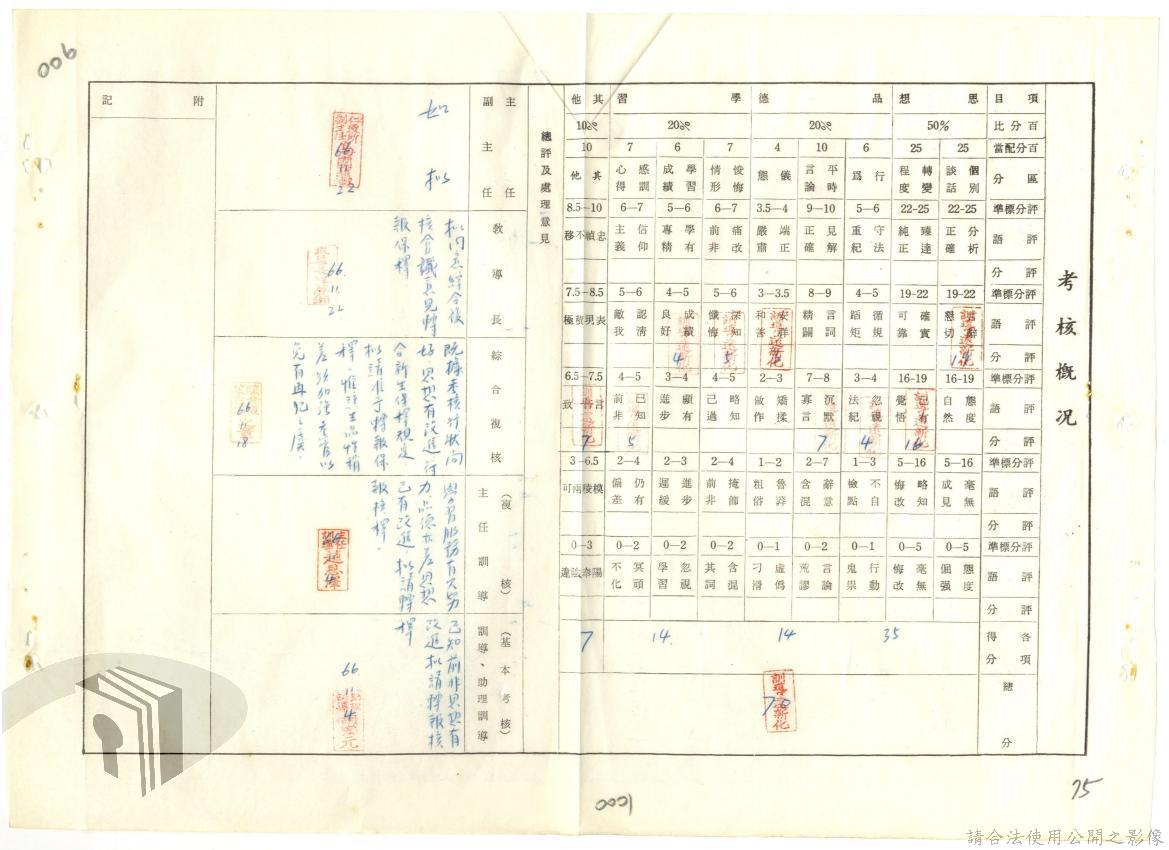 考核概況
項目 思想 品德 學習 其他
百分比 50% 20% 20% 10%
百分配當 25 25 6 10 4 7 6 7 10
區分 個別談話 轉變程度 行為 平時言論 儀態 悛悔情形 學習成績 感訓心得 其他
評分標準 22-25 22-25 5—6 9—10 3.5—4 6—7 5—6 6—7 8.5—10
評語 分析正確 臻達純正 守法重紀 見解正確 端正嚴肅 痛改前非 學有專精 信仰主義 忠禎不移
評分
評分標準 19-22 19-22 4—5 8—9 3—3.5 5—6 4—5 5—6 7.5—8.5
評語 言辭懇切 確實可靠 循規蹈矩 言詞精闢 安祥和善 深知懺悔 成績良好 認清敵我 表現積極
評分 19 5 4
評分標準 16-19 16-19 3—4 7—8 2—3 4—5 3—4 4—5 6.5—7.5
評語 態度自然 已有覺悟 忽視法紀 沉默寡言 矯揉做作 略知己過 顯有進步 已知前非 言行一致
評分 16 4 7 5 7
評分標準 5—16 5—16 1—3 2—7 1—2 2—4 2—3 2—4 3—6.5
評語 毫無成見 略知悔改 不自檢點 辭意含混 魯莽粗俗 掩飾前非 進步遲緩 仍有偏差 模稜兩可
評分
評分標準 0—5 0—5 0—1 0—2 0—1 0—2 0—2 0—2 0—3
評語 態度倔强 毫無悔改 行動鬼祟 言論荒謬 虛僞刁滑 含混其詞 忽視學習 冥頑不化 陽奉陰違
評分
各項得分 35 14 14 7
總分 70
總評及處理意見
(基本考核)
訓導、助理訓導
已知前非思想有
改進擬請轉報核
釋
66
11
4
(複核)
主任訓導
學習服務有欠努
力品德亦差思想
已有改進擬請轉
報核釋。
綜合複核
既據考核行狀尚
好思想有改進行
合新生保釋規定
擬請准予轉報保
釋。惟該生品性稍
差須加強考管以
免有再犯之虞。
66
11
18
教導長
擬同意綜合複
核會議意見轉
報保釋。
66.
11.
22
主任
副主任
如擬
66
11
22
附記
006
0001
75
請合法使用公開之影像